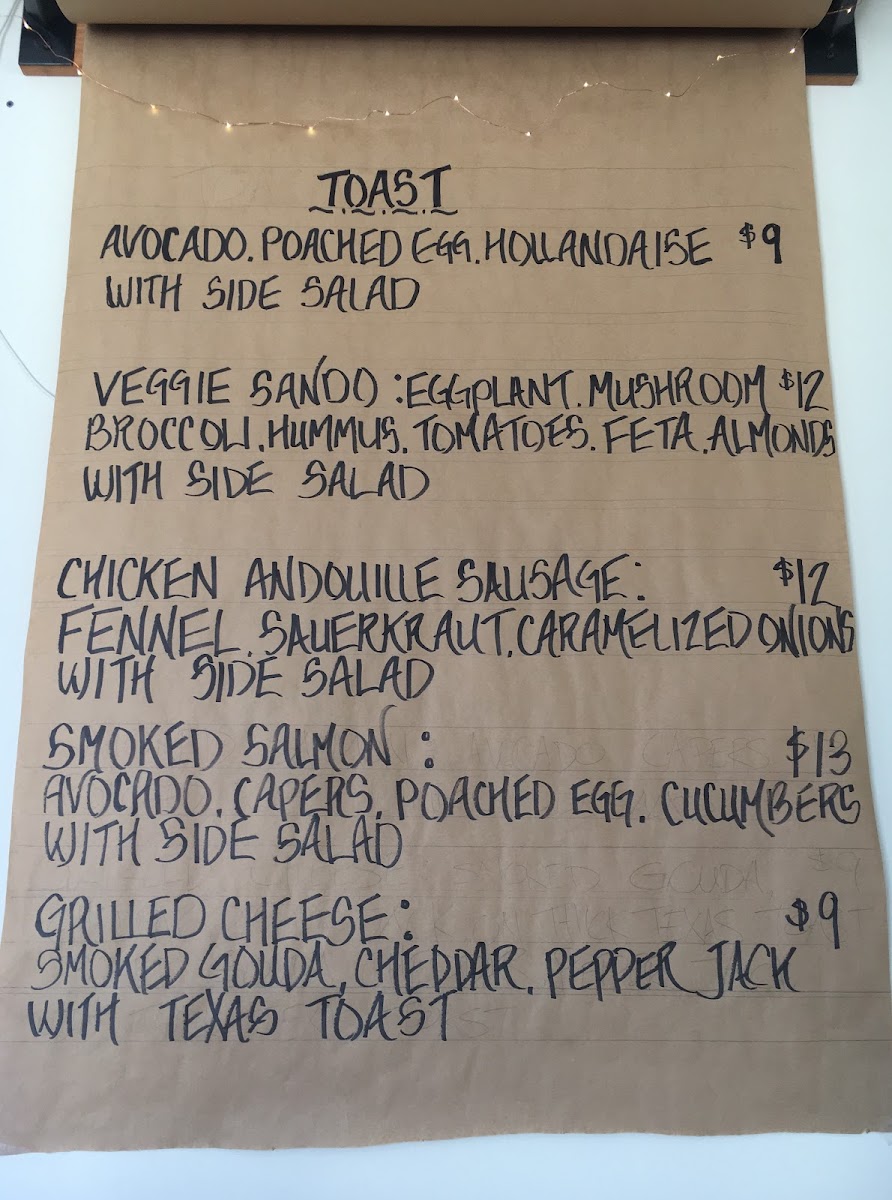 TOAST
AVOCADO. POACHED EGG. HOLLANDAISE $9
WITH SIDE SALAD
VEGGIE SANDO : EGGPLANT. MUSHROOM $12
BROCCOLI. HUMMUS. TOMATOES. FETA. ALMONDS
WITH SIDE SALAD
CHICKEN ANDOUILLE SAUSAGE: $12
FENNEL. SAUERKRAUT. CARAMELIZED ONIONS
WITH SIDE SALAD
SMOKED SALMON : $13
AVOCADO. CAPERS. POACHED EGG. CUCUMBERS
WITH SIDE SALAD
GRILLED CHEESE: $9
SMOKED GOUDA, CHEDDAR. PEPPER JACK
WITH TEXAS TOAST